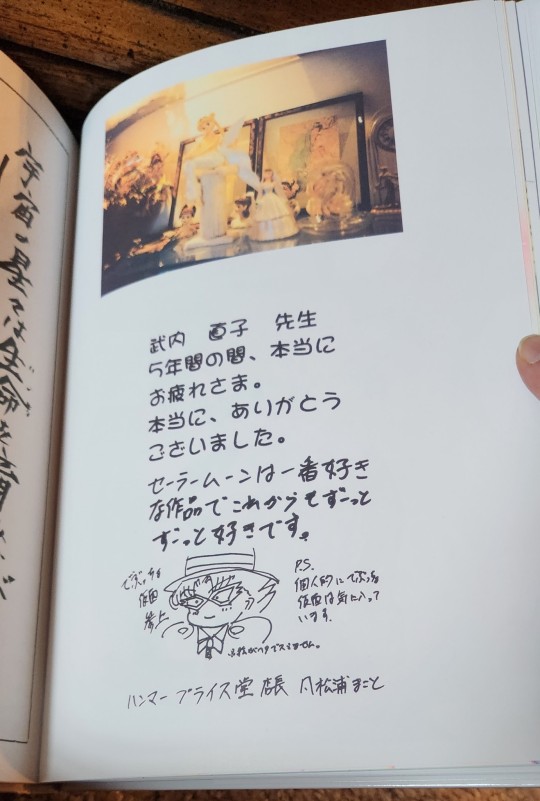 星々は生命
武内 直子 先生
5年間の間、本当に
お疲れさま。
本当に、ありがとう
ございました。
セーラームーンは一番好き
な作品でこれからもずーっと
ずーっと好きです。
仮面
参上
P.S.
個人的に
仮面は気に入って
います。
※絵がヘタですみません。
ハンマープライス堂 店長 松浦まこと